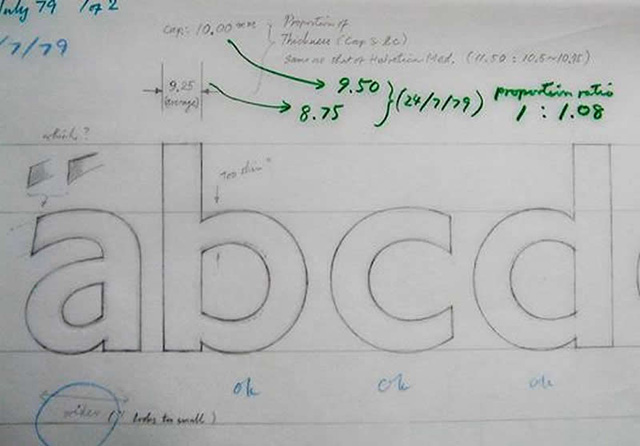 July 79 1 of 2
/7/79
cap: 10.00 mm
Proportion of
Thickness (cap & lc)
same as that of Helvetica Med. (11.50 : 10.5~10.75)
9.25
(average)
9.50
8.75
(24/7/79)
proportion ratio
1 : 1.08
which?
"too thin"
abcd
ok ok ok
wider (looks too small)